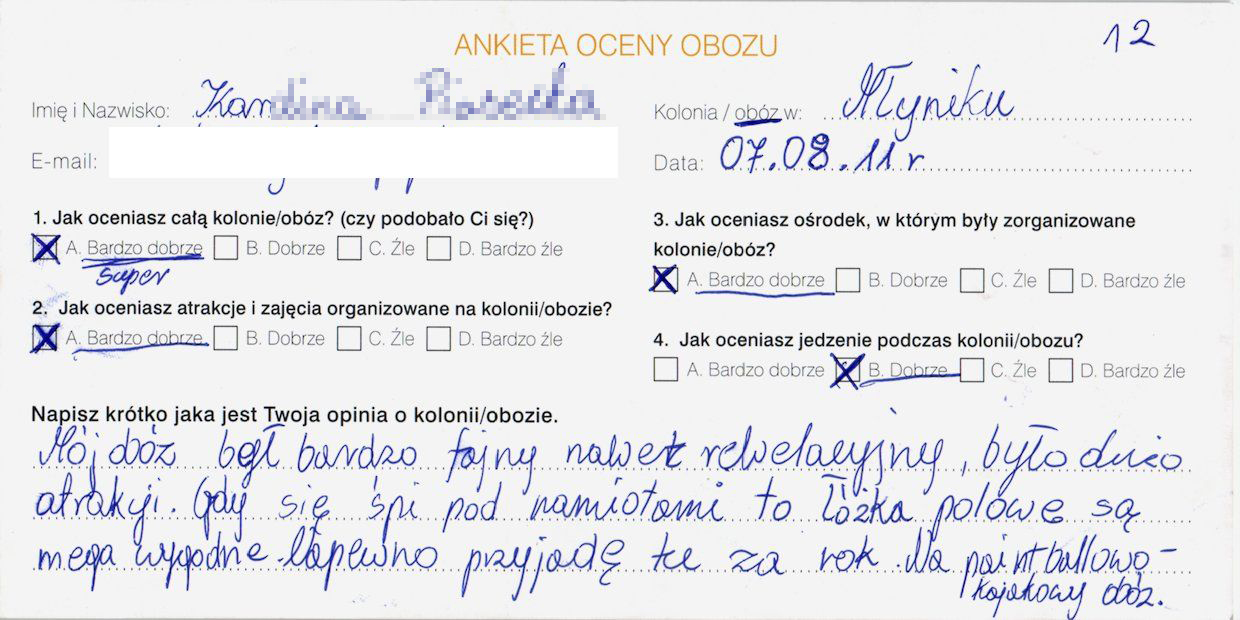 12
ANKIETA OCENY OBOZU
Imię i Nazwisko:
Kolonia / obóz w: Młyniku
E-mail:
Data: 07.08.11 r
1. Jak oceniasz całą kolonie/obóz? (czy podobało Ci się?)
A. Bardzo dobrze B. Dobrze C. Źle D. Bardzo źle
super
2. Jak oceniasz atrakcje i zajęcia organizowane na kolonii/obozie?
A. Bardzo dobrze B. Dobrze C. Źle D. Bardzo źle
3. Jak oceniasz ośrodek, w którym były zorganizowane
kolonie/obóz?
A. Bardzo dobrze B. Dobrze C. Źle D. Bardzo źle
4. Jak oceniasz jedzenie podczas kolonii/obozu?
A. Bardzo dobrze B. Dobrze C. Źle D. Bardzo źle
Napisz krótko jaka jest Twoja opinia o kolonii/obozie.
Mój obóz był bardzo fajny nawet rewelacyjny, było dużo
atrakji. Gdy się śpi pod namiotami to łóżka polowe są
mega wygodne. Napewno przyjadę tu za rok. Na paintballowo-
kajakowy obóz.